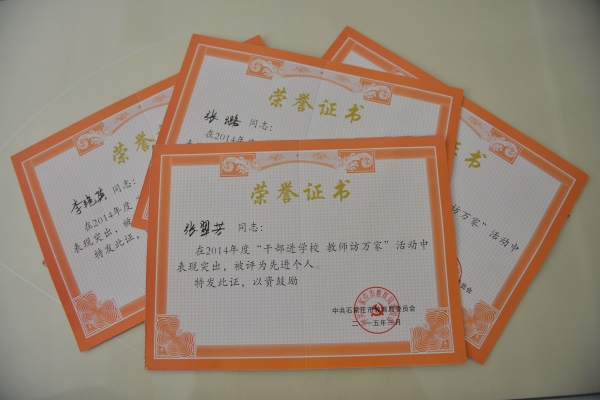 荣誉证书
张璐 同志：
在2014年度
表现
荣誉证书
李艳英 同志：
在2014年度
表现突出，被
特发此证，
证书
访万家”活动中
委员会
荣誉证书
张翠芳 同志：
在2014年度“干部进学校 教师访万家”活动中
表现突出，被评为先进个人。
特发此证，以资鼓励
中共石家庄市 委员会
二〇一五年三月